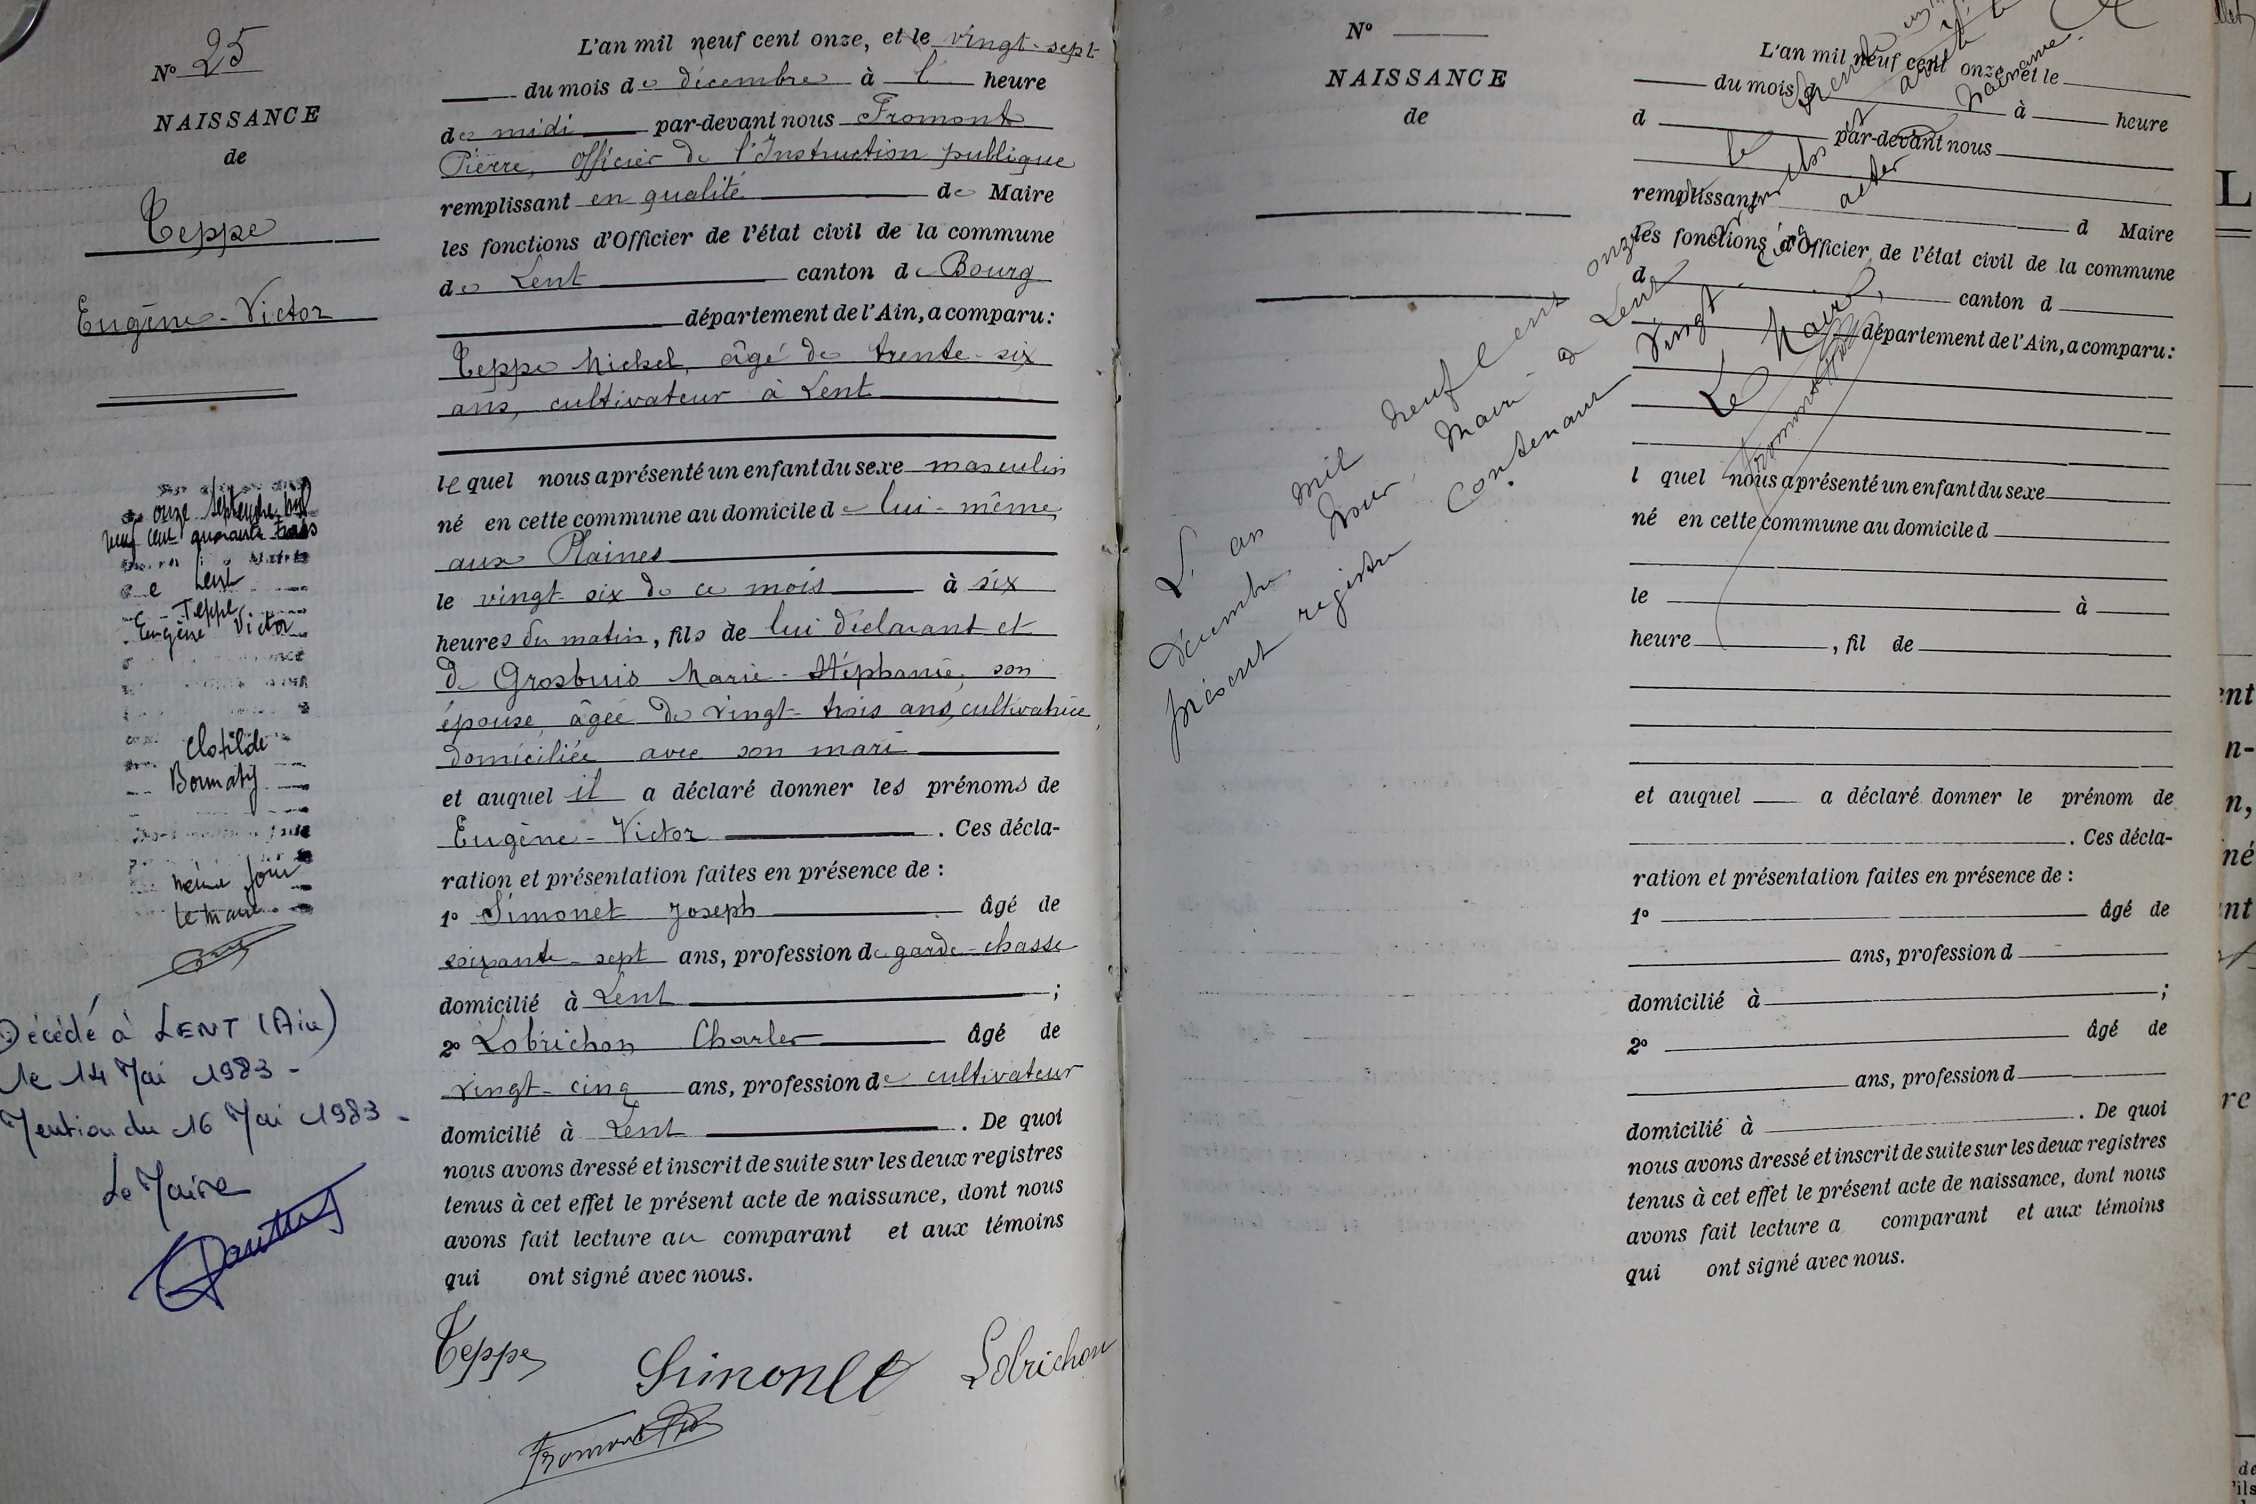 N° 25
NAISSANCE
de
Teppe
Eugène-Victor
onze Septembre mil
neuf cent quarante trois
Lent
Teppe
Eugène Victor
Clotilde
même jour
Le maire
Décédé à LENT (Ain)
le 14 Mai 1983 -
Mention du 16 Mai 1983 -
Le Maire
L'an mil neuf cent onze, et le vingt-sept
du mois de décembre à l' heure
de midi par-devant nous Fromont
Pierre, officier de l'Instruction publique
remplissant en qualité de Maire
les fonctions d'Officier de l'état civil de la commune
de Lent canton de Bourg
département de l'Ain, a comparu :
Teppe Michel, âgé de trente-six
ans, cultivateur à Lent
lequel nous a présenté un enfant du sexe masculin
né en cette commune au domicile de lui-même
aux Plaines
le vingt six de ce mois à six
heures du matin, fils de lui déclarant et
de Grosbuis Marie-Stéphanie, son
épouse, âgée de vingt-trois ans, cultivatrice
domiciliée avec son mari
et auquel il a déclaré donner les prénoms de
Eugène-Victor. Ces décla-
ration et présentation faites en présence de :
1° Simonet Joseph âgé de
soixante-sept ans, profession de garde-chasse
domicilié à Lent ;
2° Lobrichon Charles âgé de
vingt-cinq ans, profession de cultivateur
domicilié à Lent. De quoi
nous avons dressé et inscrit de suite sur les deux registres
tenus à cet effet le présent acte de naissance, dont nous
avons fait lecture au comparant et aux témoins
qui ont signé avec nous.
Teppe Simonet Lobrichon
Fromont
N°
NAISSANCE
de
L'an mil neuf cent onze, et le
du mois d à heure
d par-devant nous
remplissant d Maire
les fonctions d'Officier de l'état civil de la commune
d canton d
département de l'Ain, a comparu :
l quel nous a présenté un enfant du sexe
né en cette commune au domicile d
le à
heure , fil de
et auquel a déclaré donner le prénom de
. Ces décla-
ration et présentation faites en présence de :
1° âgé de
ans, profession d
domicilié à ;
2° âgé de
ans, profession d
domicilié à . De quoi
nous avons dressé et inscrit de suite sur les deux registres
tenus à cet effet le présent acte de naissance, dont nous
avons fait lecture a comparant et aux témoins
qui ont signé avec nous.
L'an mil neuf cent onze
décembre, Nous, Maire de Lent
présent registre contenant vingt
Le Maire,